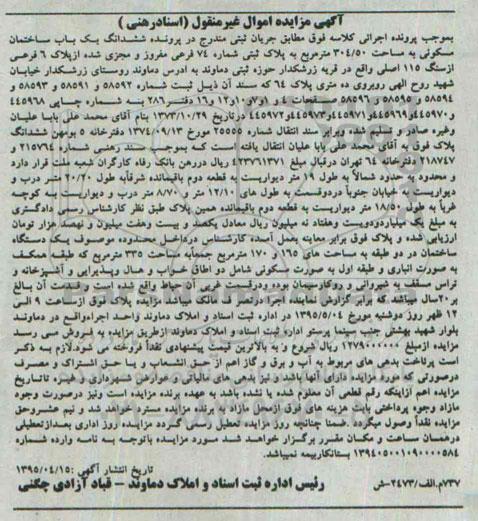 آگهی مزایده اموال غیرمنقول (اسنادرهنی)
بموجب پرونده اجرائی کلاسه فوق مطابق جریان ثبتی مندرج در پرونده ششدانگ یک باب ساختمان
مسکونی به مساحت ۳۰۴/۵۰ مترمربع به پلاک ثبتی شماره ۷۴ فرعی مفروز و مجزی شده ازپلاک ۶ فرعی
ازسنگ ۱۱۵ اصلی واقع در قریه زرشکدار حوزه ثبتی دماوند به ادرس دماوند روستای زرشکدار خیابان
شهید روح الهی روبروی ده متری پلاک ۶۴ که سند آن ذیل ثبت شماره ۵۸۵۹۲ و ۵۸۵۹۱ و ۵۸۵۹۳ و
۵۸۵۹۴ و ۵۸۵۹۵ و ۵۸۵۹۶ صفحات ۴و۱و۷و۱۰و۱۲و۱۶ دفتر ۲۸۶ بنه شماره چاپی ۴۴۵۹۶۸
و۴۴۵۹۷۰و۴۴۵۹۶۹و۴۴۵۹۷۱و۴۴۵۹۷۳و۴۴۵۹۷۲ درتاریخ ۱۳۷۳/۱۰/۲۹ بنام آقای محمد علی بابا علیان
وغیره صادر و تسلیم شده وبرابر سند انتقال شماره ۲۵۵۵۵ مورخ ۱۳۷۴/۰۹/۱۳ دفترخانه ۵ بومهن ششدانگ
پلاک فوق به آقای محمد علی بابا علیان انتقال یافته است که بموجب سند رهنی شماره ۲۱۵۷۶۴ و
۲۱۸۷۴۷ دفترخانه ۶۴ تهران درقبال مبلغ ۴۲۳۷۶۱۳۷۱ ریال دررهن بانک رفاه کارگران شعبه ملت قرار دارد
و محدود به حدود شمالاً به طول ۱۹ متر دیواریست به قطعه دوم باقیمانده شرقاًبه طول ۲۰/۲۰ متر درب و
دیواریست به خیابان جنوباً دردوقسمت به طول های ۱۲/۱۰ متر و ۸/۷۰ متر درب و دیواریست به کوچه
غرباً به طول ۱۸/۵۰ متر دیواریست به قطعه دوم باقیمانده همین پلاک طبق نظر کارشناس رسمی دادگستری
به مبلغ یک میلیاردودویست وهفتاد نه میلیون ریال معادل یکصد و بیست وهفت میلیون و نهصد هزار تومان
ارزیابی شده و پلاک فوق برابر معاینه بعمل آمده کارشناس درداخل محدوده موصوف یک دستگاه
ساختمان در دو طبقه به مساحت های ۱۶۵ و ۱۷۰ مترمربع جمعاًبه مساحت ۳۳۵ مترمربع که طبقه همکف
به صورت انباری و طبقه اول به صورت مسکونی شامل دو اطاق خواب و هال وپذیرایی و آشپزخانه و
تراس مسقف به شیروانی و روکارسیمان بوده ودرقسمت غربی آن حیاط واقع شده است و قدمت آن بالغ
بر ۲۰سال میباشد که برابر گزارش نماینده اجرا درتصرف مالک میباشد مزایده پلاک فوق ازساعت ۹ الی
۱۲ ظهر روز دوشنبه مورخ ۱۳۹۵/۵/۰۴ در اداره ثبت اسناد و املاک دماوند واحد اجراءواقع در دماوند
بلوار شهید بهشتی جنب سینما پرستو اداره ثبت اسناد و املاک دماوند ازطریق مزایده به فروش می رسد
مزایده ازمبلغ ۱۲۷۹۰۰۰۰۰۰ ریال شروع و به بالاترین قیمت پیشنهادی نقداً فروخته می شود.لازم به ذکر
است پرداخت بدهی های مربوط به آب و برق و گاز اعم از حق انشعاب و یا حق اشتراک و مصرف
درصورتی که مورد مزایده دارای آنها باشد و نیز بدهی های مالیاتی و عوارض شهرداری و غیره تاتاریخ
مزایده اعم ازاینکه رقم قطعی آن معلوم شده یا نشده باشد به عهده برنده مزایده است ونیز درصورت وجود
مازاد وجوه پرداختی بابت هزینه های فوق ازمحل مازاد به برنده مزایده مسترد خواهد شد و نیم عشروحق
مزایده نقداً وصول میگردد .ضمناً چنانچه روز مزایده تعطیل رسمی گردد مزایده روز اداری بعدازتعطیلی
درهمان ساعت و مکان مقرر برگزار خواهد شد مورد مزایده باتوجه به نامه وارده شماره
۱۳۹۴۰۵۰۰۱۰۹۰۰۰۵۸۴ بستانکاربیمه نمیباشد.
تاریخ انتشار آگهی :۱۳۹۵/۰۴/۱۵
رئیس اداره ثبت اسناد و املاک دماوند – قباد آزادی چگنی
۷۳۷م.الف/۲۴۷۳-ش